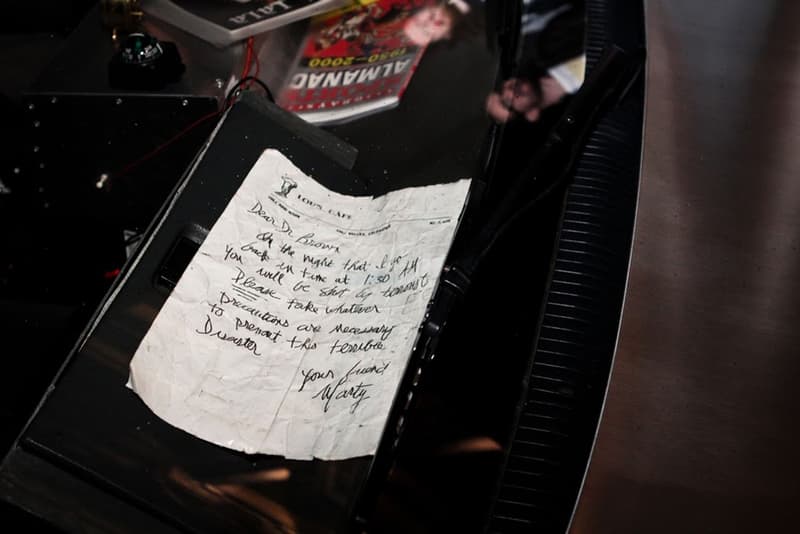 LaLa
SPORTS
ALMANAC
1950-2000
LOU'S CAFE
Dear Dr Brown
On the night that I go
back in time at 1:30 AM
You will be shot by terrorist
Please take whatever
precautions are necessary
to prevent this terrible
Disaster
Your friend
Marty